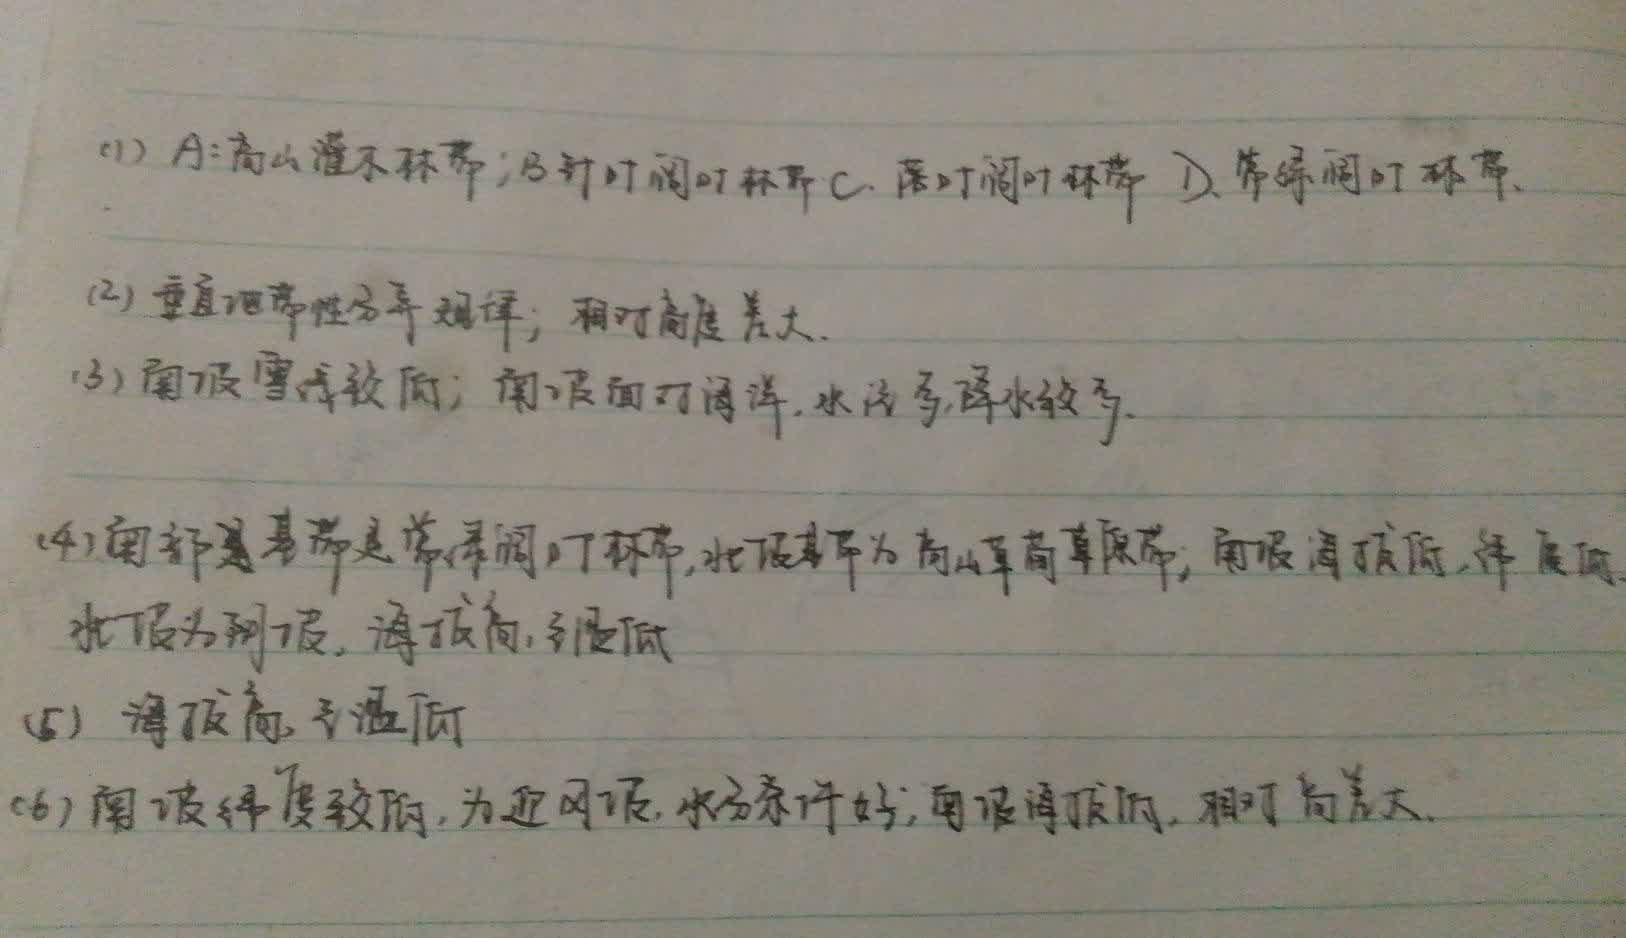 (1) A:高山灌木林带;B针叶阔叶林带 C.落叶阔叶林带 D、常绿阔叶林带、
(2) 垂直地带性分异规律; 相对高度差大.
(3) 南坡雪线较低; 南坡面对海洋.水汽多,降水较多.
(4)南部是基带是常绿阔叶林带,北坡基带为高山草甸草原带; 南坡海拔低.纬度低.
北坡为阴坡.海拔高,气温低
(5) 海拔高、气温低
(6) 南坡纬度较低,为迎风坡.水分条件好;南坡海拔低.相对高差大.